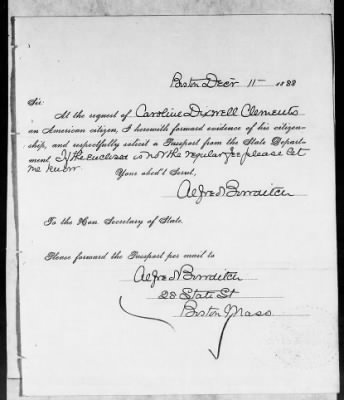 Boston Decr 11 1888
Sir:
At the request of Caroline Dixwell Clements
an American citizen, I herewith forward evidence of his citizen-
ship, and respectfully solicit a Passport from the State Depart-
ment. If the enclosed is not the regular fee please let
me know
Your obed't Servt,
Alfred Bowditch
To the Hon. Secretary of State.
Please forward the Passport per mail to
Alfred Bowditch
28 State St
Boston Mass